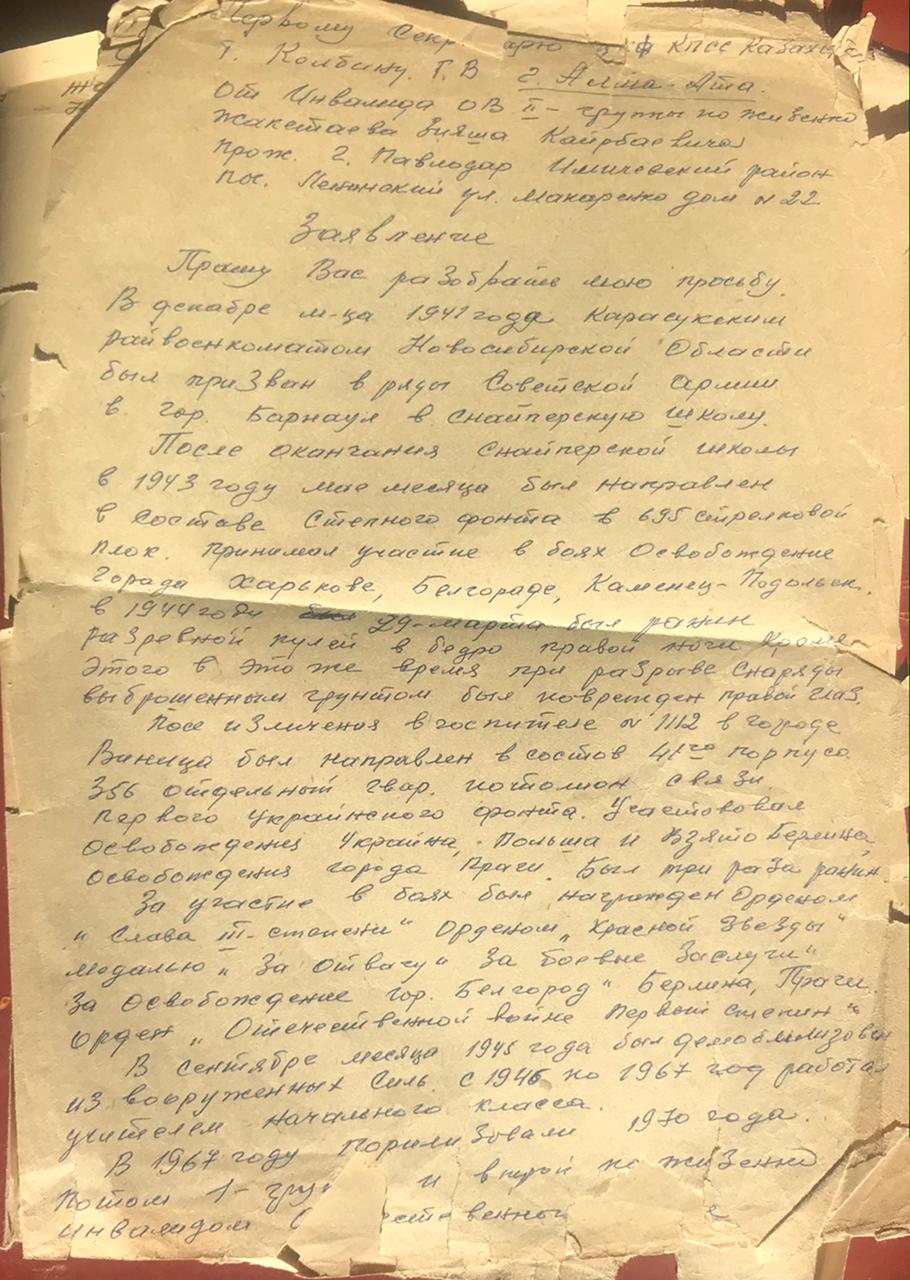 Первому Секр арю КПСС Казахс
Т. Колбину. Г. В г. Алма-Ата.
От Инвалида ОВ II- группы пожизненно
Жакетаева Зияша Каирбаевича
прож. г. Павлодар район
пос. Ленинский ул. Макаренко дом N 22
Заявление
Прошу Вас разобрать мою просьбу.
В декабре м-ца 1941 года Карасукским
райвоенкоматом Новосибирской Области
был призван в ряды Советской армии
в. гор. Барнаул в снайперскую школу.
После окончания снайперской школы
в 1943 году мае месяца был направлен
в составе Степного фронта в 695 стрелковой
полк. принимал участие в боях Освобождение
города Харькове, Белгороде, Каменец-Подольск.
в 1944 году 29-марта был ранин
разревной пулей в бедро правой ноги Кроме
этого в это же время при разрыве снаряды
выброшенным грунтом был поврежден правой глаз.
Посе изличения в госпителе N 1112 в городе
Виница был направлен в состов 41го корпуса
356 отдельный гвар. потолион связи
первого Украинского фронта. Участвовал
освобождения Украина, Польша и взято Берлина,
освобождения города Праги. Был три раза ранин.
За участие в боях был награжден Орденом
"Слава III-степени" Орденом "Красной Звезды"
медалью "За Отвагу" За боевые Заслуги"
За Освобождение гор. Белгород" Берлина, Праги.
орден "Отечественной войне первый степин"
В сентябре месяца 1945 года был демоблизован
из вооруженных Силь. с 1946 по 1967 год работал
учителем начального класса.
В 1967 году порилизовали 1970 года.
потом 1- груп и второй по жизенно
инвалидом ественной